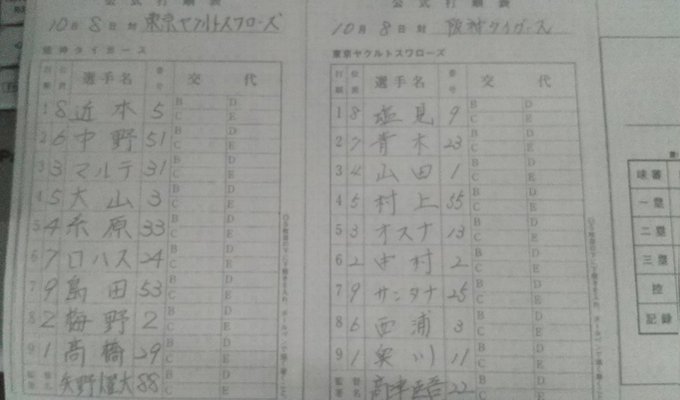 公式打順表
10月8日 対 東京ヤクルトスワローズ
阪神タイガース
打順 位置 選手名 番号 交代
1 8 近本 5 B C D E
2 6 中野 51 B C D E
3 3 マルテ 31 B C D E
4 5 大山 3 B C D E
5 4 糸原 33 B C D E
6 7 ロハス 24 B C D E
7 9 島田 53 B C D E
8 2 梅野 2 B C D E
9 1 高橋 29 B C D E
監督 矢野燿大 88
公式打順表
10月8日 対 阪神タイガース
東京ヤクルトスワローズ
打順 位置 選手名 番号 交代
1 8 塩見 9 B C D E
2 7 青木 23 B C D E
3 4 山田 1 B C D E
4 5 村上 55 B C D E
5 3 オスナ 13 B C D E
6 2 中村 2 B C D E
7 9 サンタナ 25 B C D E
8 6 西浦 3 B C D E
9 1 奥川 11 B C D E
監督署名 高津臣吾 22
球審
一塁
二塁
三塁
控
記録